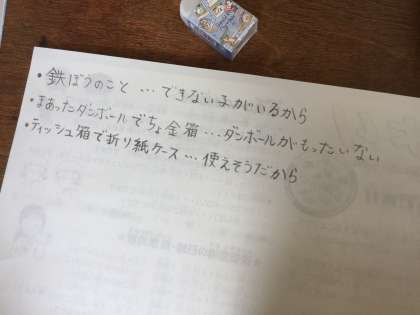 ・鉄ぼうのこと…できない子がいるから
・まあったダンボールでちょ金箱…ダンボールがもったいない
・ティッシュ箱で折り紙ケース…使えそうだから